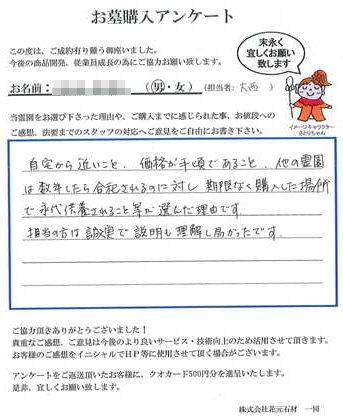 お墓購入アンケート
この度は、ご成約有り難う御座いました。
今後の商品開発、従業員成長の為にご協力お願い致します。
末永く
宜しくお願い
致します
お名前：
（男・女）（担当者：大西）
当霊園をお選び下さった理由や、ご購入までに感じられた事、お値段への
ご感想、法要までのスタッフの対応へご意見をご自由にお書き下さい。
イメージキャラクター
さとりちゃん
自宅から近いこと、価格が手頃であること、他の霊園
は数年したら合祀されるのに対し期限なく購入した場所
で永代供養されること等が選んだ理由です。
担当の方は誠実で説明も理解し易かったです。
ご協力頂きありがとうございました！
貴重なご感想、ご意見は今後のより良いサービス・技術向上のため活用させて頂きます。
お客様のご感想をイニシャルでHP等に使用させて頂く場合がございます。
アンケートをご返送頂いたお客様に、クオカード500円分を進呈いたします。
是非、宜しくお願い致します。
株式会社花元石材　一同